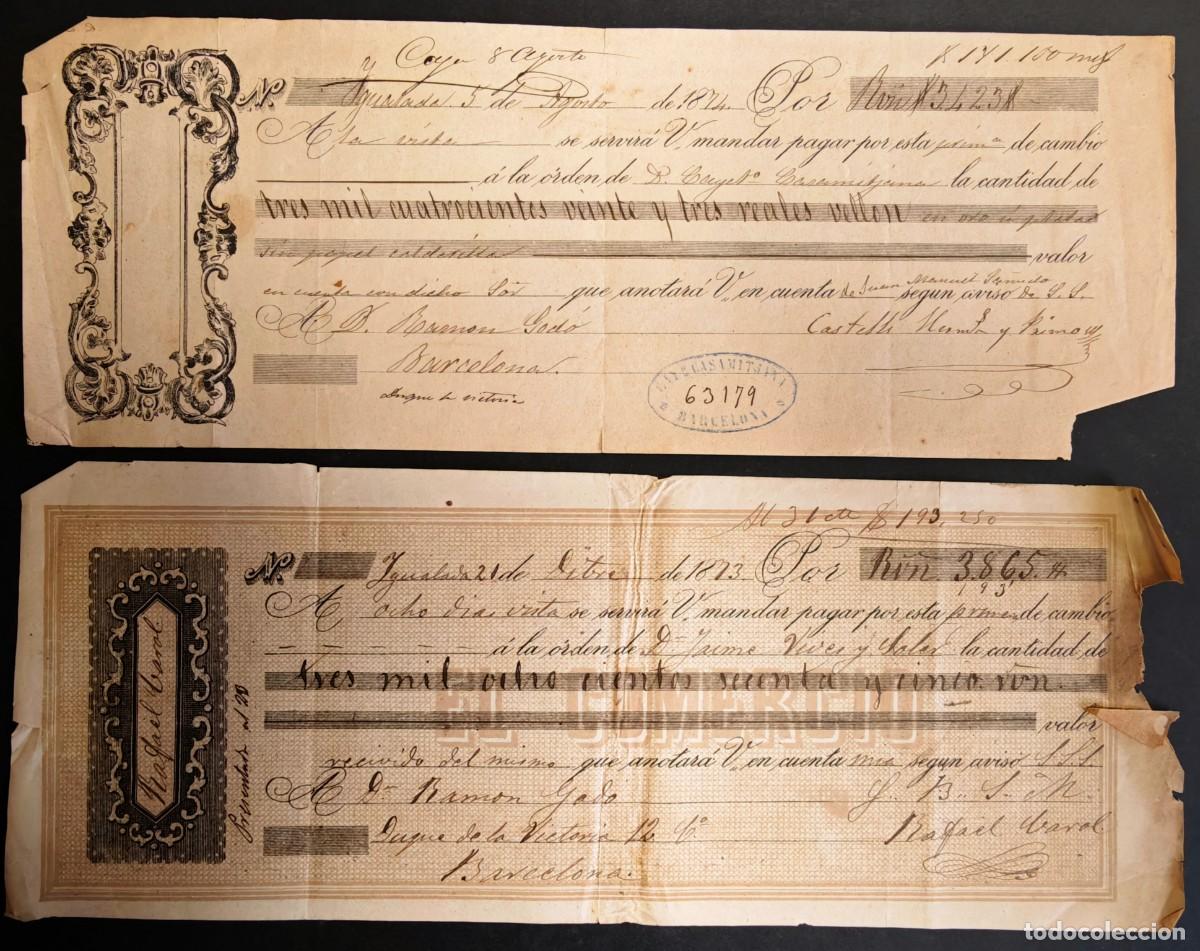 y Caya 8 Agosto
171.150 m
Nº. Igualada 5 de Agosto de 1874. Por Rvn #3423#
A la vista se servirá V. mandar pagar por esta prima de cambio
á la órden de D. Cayetº Casamitjana la cantidad de
tres mil cuatrocientos veinte y tres reales vellon en oro ó plata
sin papel calderilla valor
en cuenta con dicho Sor que anotará V. en cuenta de Juan Manuel segun aviso de S.S.
A D. Ramon Godó Castells Herms y Primo
Barcelona.
Duque la victoria
CAYº CASAMITJANA
63179
BARCELONA
Al 31 cte 193,250
Nº. Igualada 21 de Dibre de 1873 Por Rvn 3.865.#
193
A ocho dias vista se servirá V. mandar pagar por esta primera de cambio
á la órden de Dn Jaime Vives y Solar la cantidad de
tres mil ocho cientos secenta y cinco rvn.
EL COMERCIO
valor
recivido del mismo que anotará V. en cuenta mia segun aviso S.S.S.
A Dn Ramon Godo B. S. M.
Duque de la Victoria 12 Rafael Carol
Barcelona.
Rafael Carol
Presentada al 20
todocoleccion